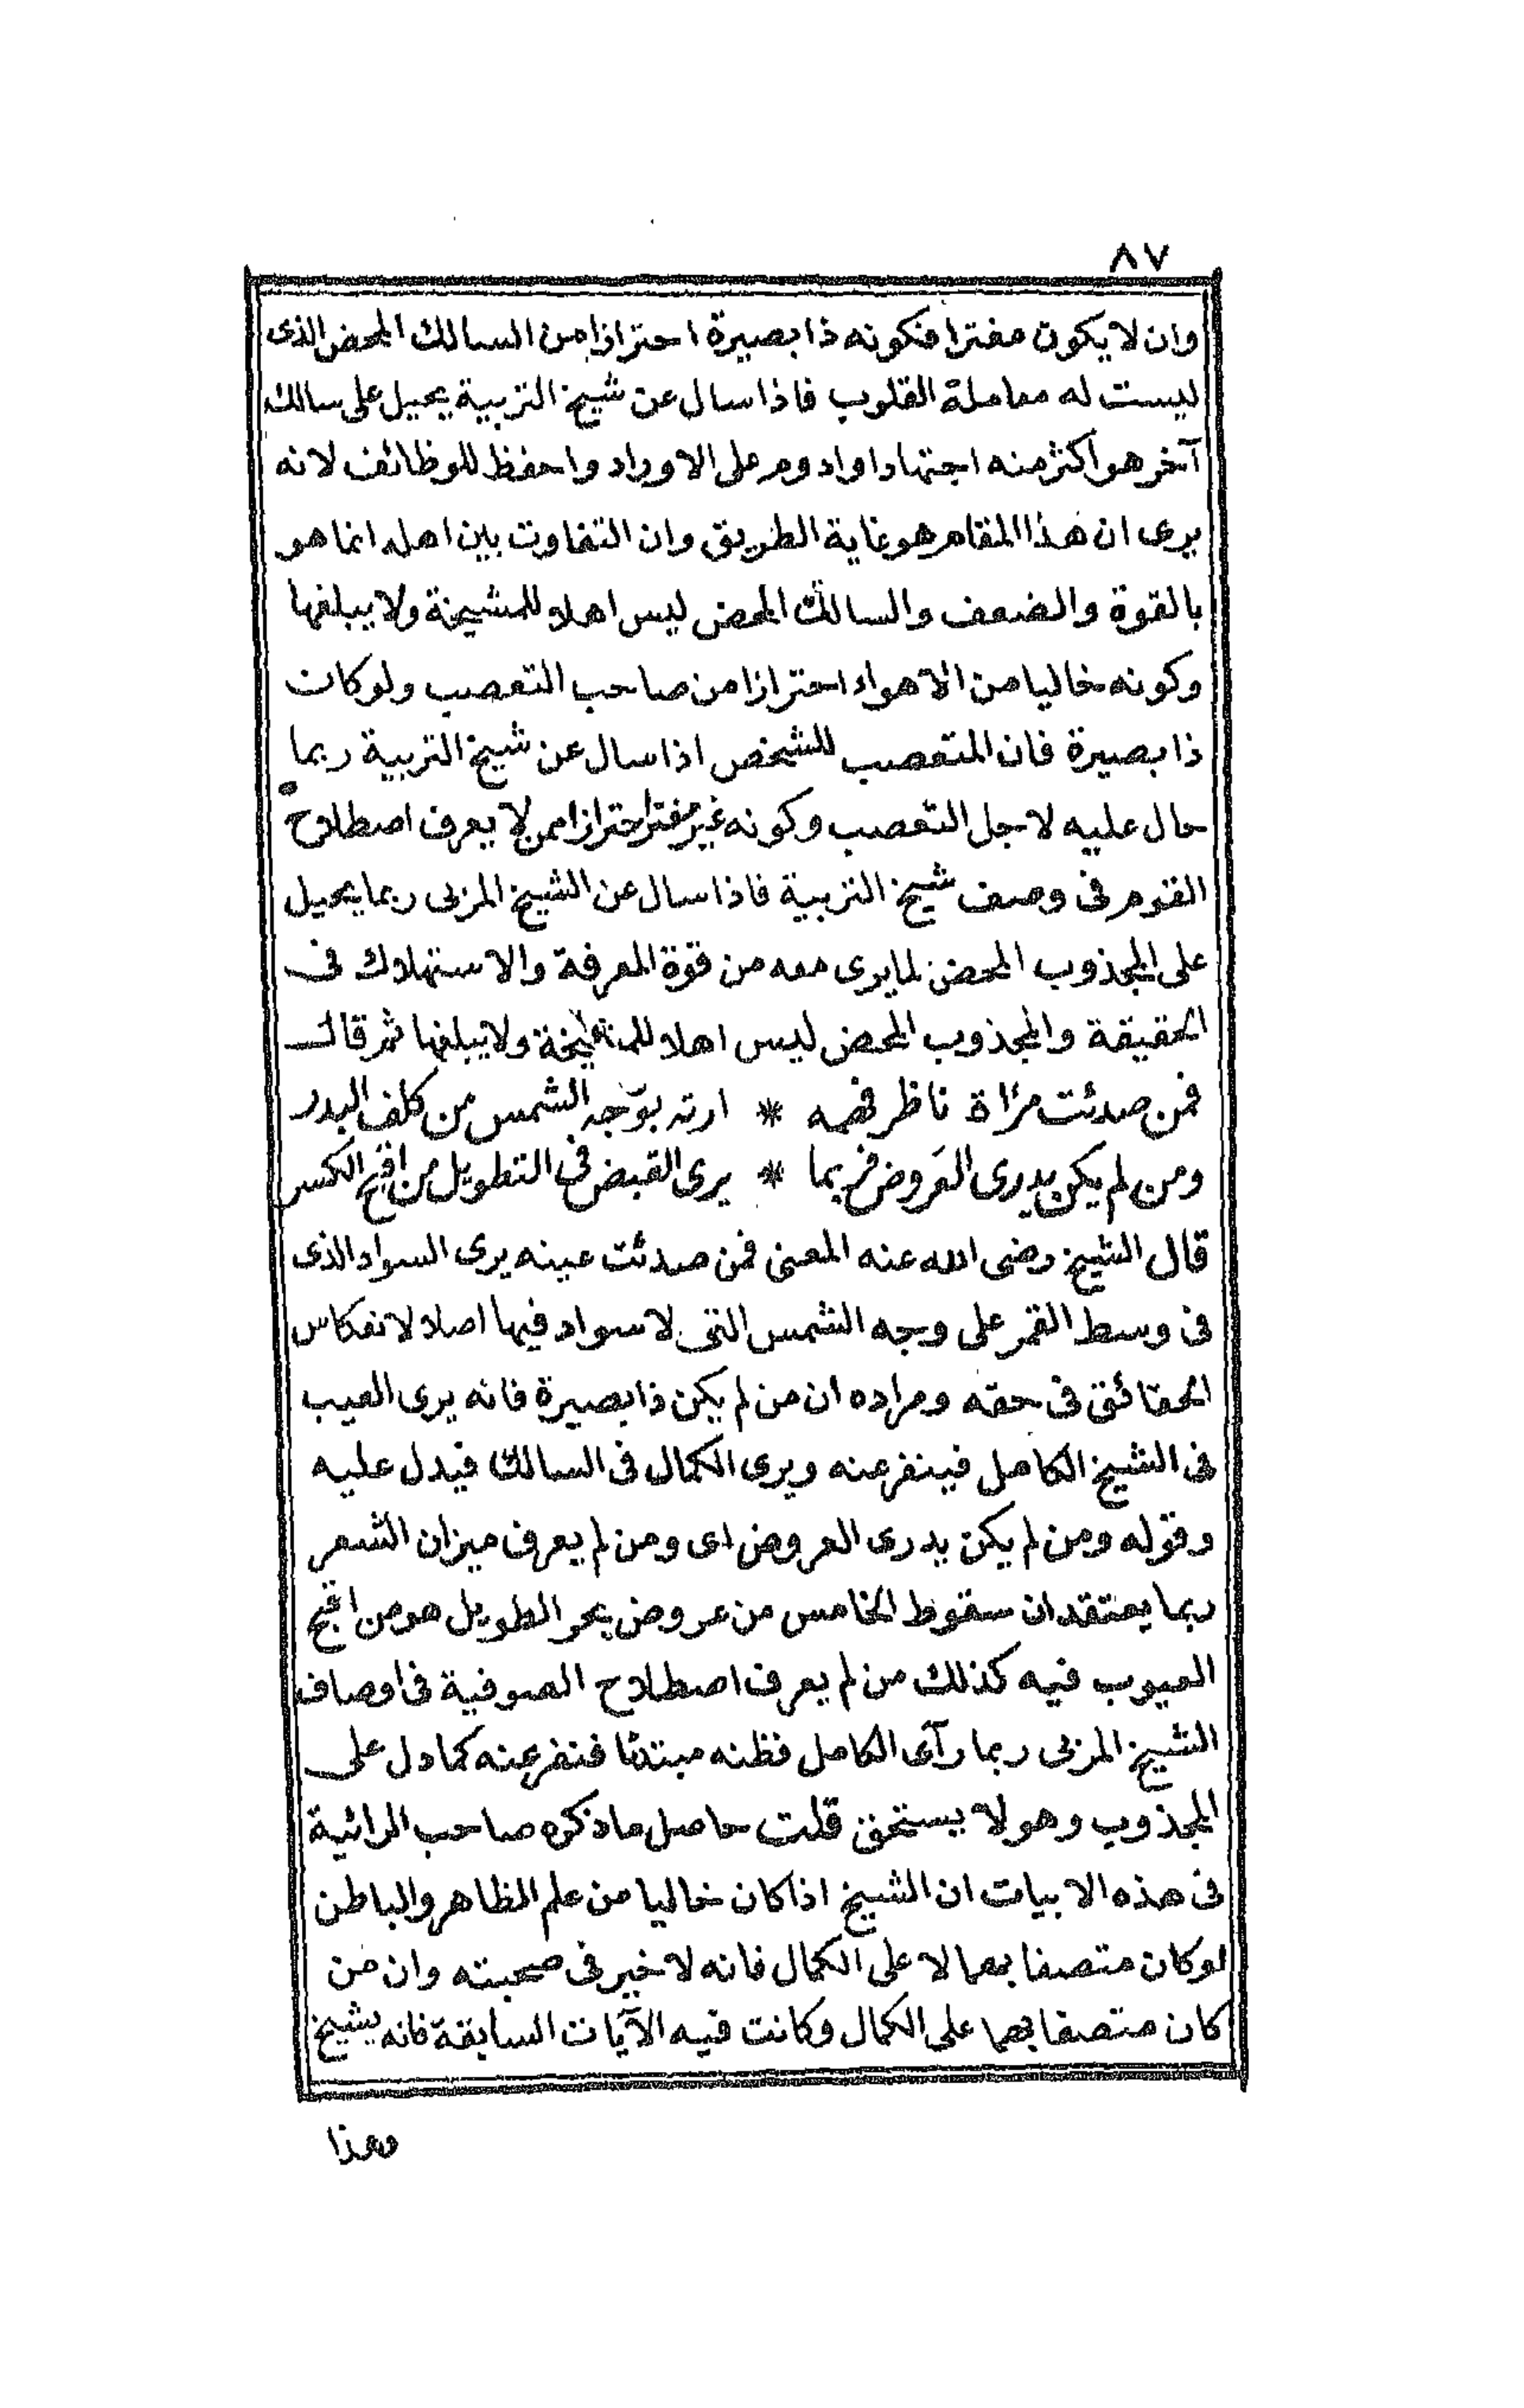 ٨٧
وان لا يكون مغترا فكونه ذا بصيرة احترازا من السالك المحض الذى
ليست له معاملة القلوب فاذا سال عن شيخ التربية يحيل على سالك
آخر هو اكثر منه اجتهادا وادوم على الاوراد واحفظ للوظائف لانه
يرى ان هذا المقام هو غاية الطريق وان التفاوت بين اهله انما هو
بالقوة والضعف والسالك المحض ليس اهلا للمشيخة ولا يبلغها
وكونه خاليا من الاهواء احترازا من صاحب التعصب ولو كان
ذا بصيرة فان المتعصب للشخص اذا سال عن شيخ التربية ربما
حال عليه لاجل التعصب وكونه غير مغتر احترازا ممن لا يعرف اصطلاح
القوم فى وصف شيخ التربية فاذا سال عن الشيخ المربى ربما يحيل
على المجذوب المحض لما يرى معه من قوة المعرفة والاستهلاك فى
الحقيقة والمجذوب المحض ليس اهلا للمشيخة ولا يبلغها ثم قال
فمن صدئت مرٔاة ناظر فهمه * ارته بوجه الشمس من كلف البدر
ومن لم يكن يدرى العَروض فربما * يرى القبض فى التطويل من اقبح الكسر
قال الشيخ رضى الله عنه المعنى فمن صدئت عينه يرى السواد الذى
فى وسط القمر على وجه الشمس التى لا سواد فيها اصلا لانعكاس
الحقائق فى حقه ومراده ان من لم يكن ذا بصيرة فانه يرى العيب
فى الشيخ الكامل فينفر عنه ويرى الكمال فى السالك فيدل عليه
وقوله ومن لم يكن يدرى العروض اى ومن لم يعرف ميزان الشعر
ربما يعتقد ان سقوط الخامس من عروض بحر الطويل هو من اقبح
العيوب فيه كذلك من لم يعرف اصطلاح الصوفية فى اوصاف
الشيخ المربى ربما رآى الكامل فظنه مبتدئا فنفر عنه كما دل على
المجذوب وهو لا يستحق قلت حاصل ما ذكره صاحب الرائية
فى هذه الابيات ان الشيخ اذا كان خاليا من علم الظاهر والباطن
لو كان متصفا بهما لا على الكمال فانه لا خير فى صحبته وان من
كان متصفا بهما على الكمال وكانت فيه الآيات السابقة فانه يشيخ
وهذا